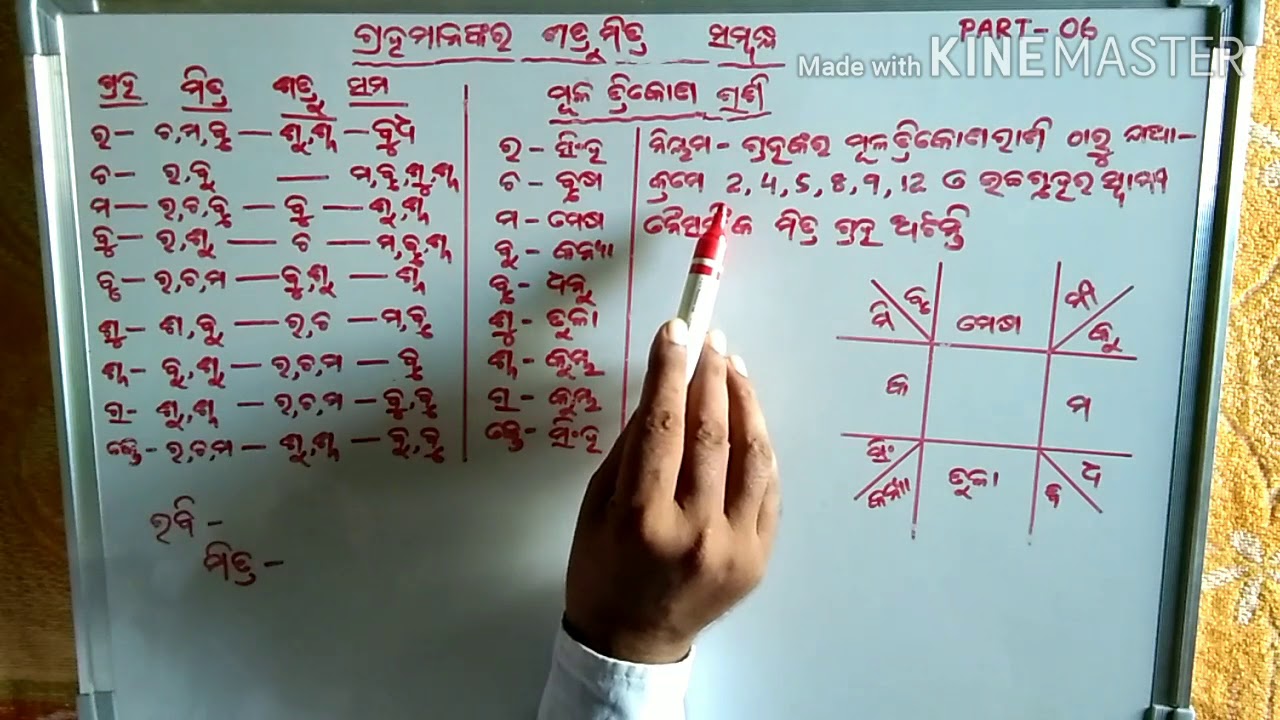 ଗ୍ରହମାନଙ୍କର ଶତ୍ରୁମିତ୍ର ସମ୍ବନ୍ଧ
PART-06
Made with KINEMASTER
ଗ୍ରହ ମିତ୍ର ଶତ୍ରୁ ସମ
ର- ଚ,ମ,ବୃ - ଶୁ,ଶ - ବୁଧ
ଚ- ର,ବୁ - ମ,ବୃ,ଶୁ,ଶ
ମ- ର,ଚ,ବୃ - ବୁ - ଶୁ,ଶ
ବୁ- ର,ଶୁ - ଚ - ମ,ବୃ,ଶ
ବୃ- ର,ଚ,ମ - ବୁ,ଶୁ - ଶ
ଶୁ- ଶ,ବୁ - ର,ଚ - ମ,ବୃ
ଶ- ବୁ,ଶୁ - ର,ଚ,ମ - ବୃ
ରା- ଶୁ,ଶ - ର,ଚ,ମ - ବୁ,ବୃ
କେ- ର,ଚ,ମ - ଶୁ,ଶ - ବୁ,ବୃ
ରବି -
ମିତ୍ର -
ମୂଳ ତ୍ରିକୋଣ ରାଶି
ର - ସିଂହ
ଚ - ବୃଷ
ମ - ମେଷ
ବୁ - କନ୍ୟା
ବୃ - ଧନୁ
ଶୁ - ତୁଳା
ଶ - କୁମ୍ଭ
ରା - କୁମ୍ଭ
କେ - ସିଂହ
ନିୟମ - ଗ୍ରହଙ୍କର ମୂଳତ୍ରିକୋଣରାଶି ଠାରୁ ଯଥା-
କ୍ରମେ 2,4,5,8,9,12 ଓ ଉଚ୍ଚଗୃହର ସ୍ୱାମୀ
ନୈସର୍ଗିକ ମିତ୍ର ଗ୍ରହ ଅଟନ୍ତି
ମି ବୃ ମେଷ ମୀ କୁ
କ ମ
ସିଂ କନ୍ୟା ତୁଳା ବି ଧ